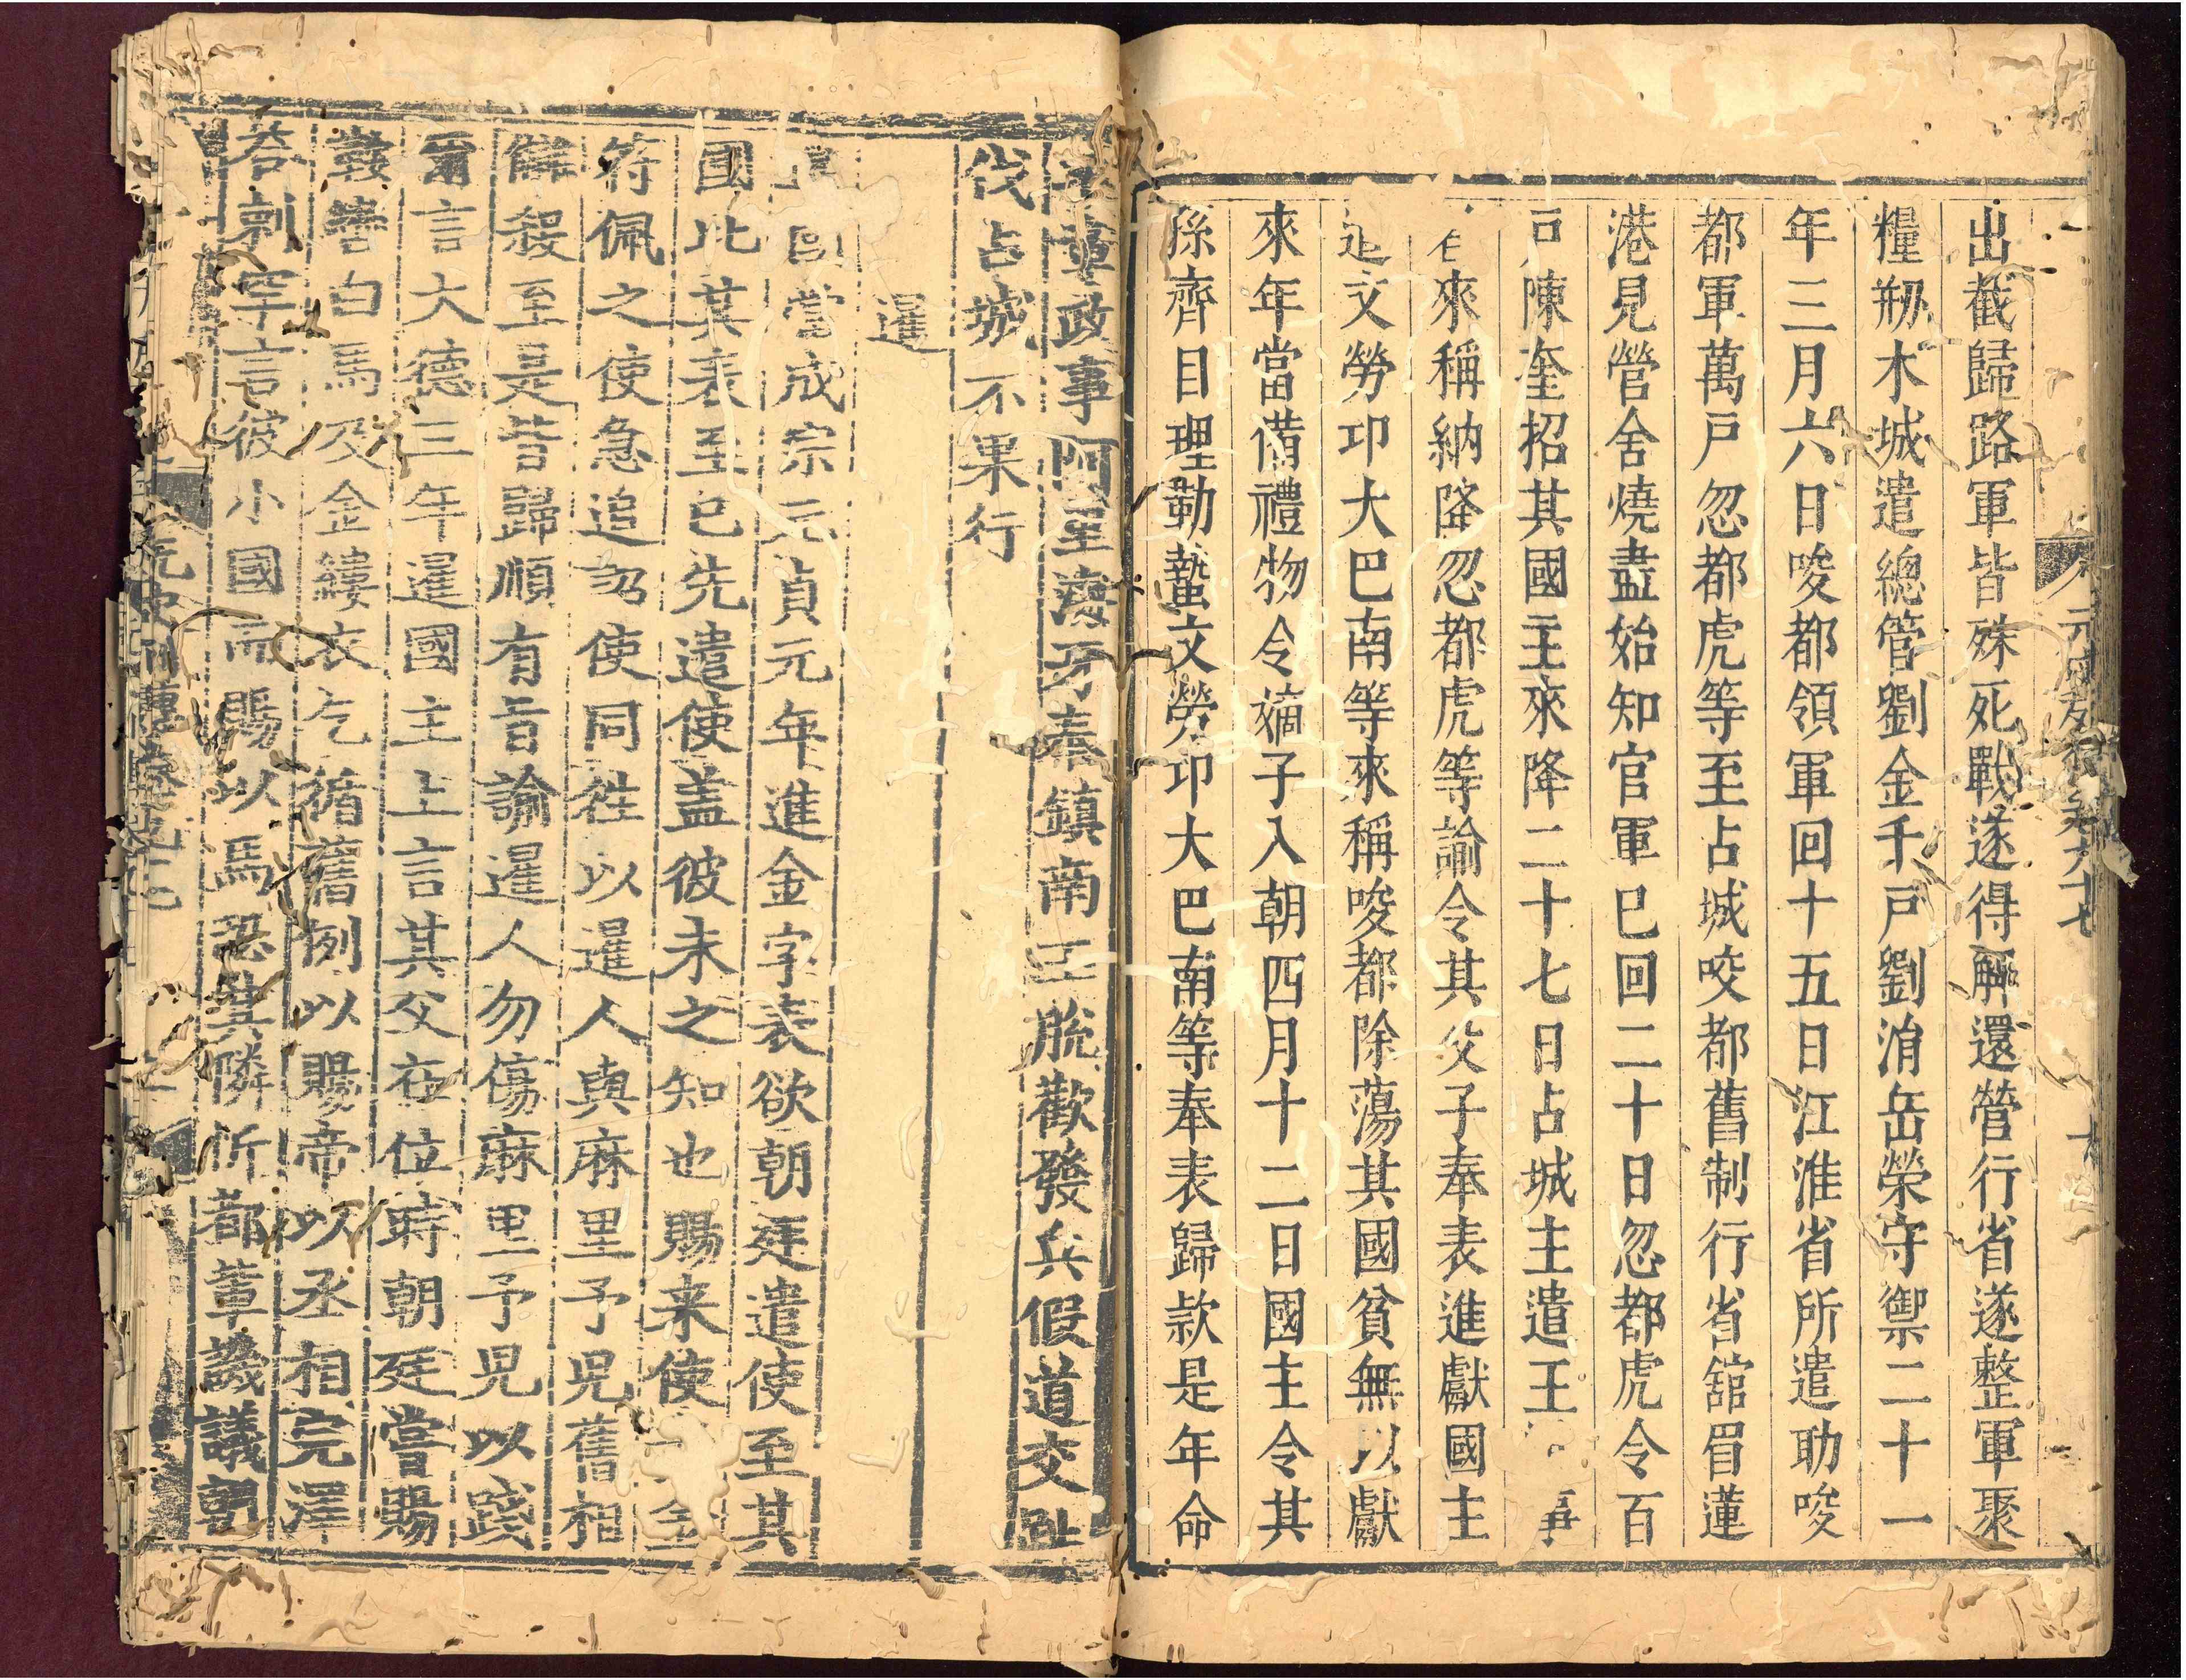 出截歸路軍皆殊死戰遂得解還營行省遂整軍聚
糧刱木城遣總管劉金千戶劉涓岳榮守禦二十一
年三月六日唆都領軍回十五日江淮省所遣助唆
都軍萬戶忽都虎等至占城唆都舊制行省舘眉蓮
港見營舍燒盡始知官軍已回二十日忽都虎令百
戶陳奎招其國主來降二十七日占城主遣王
來稱納降忽都虎等諭令其父子奉表進獻國主
文勞卭大巴南等來稱唆都除蕩其國貧無以獻
來年當備禮物令嫡子入朝四月十二日國主令其
孫齊目理勒蟄文勞卭大巴南等奉表歸款是年命
平章政事阿里海牙奉鎮南王脫歡發兵假道交趾
伐占城不果行
暹
國當成宗元貞元年進金字表欲朝廷遣使至其
國比其表至已先遣使盖彼未之知也賜来使金
符佩之使急追詔使同徃以暹人與麻里予児舊相
讎殺至是皆歸順有旨諭暹人勿傷麻里予児以踐
爾言大德三年暹國主上言其父在位時朝廷嘗賜
鞍轡白馬及金縷衣乞循舊例以賜帝以丞相完澤
荅剌罕言彼小國而賜以馬恐其隣忻都軰譏議朝
元史列傳卷九十七